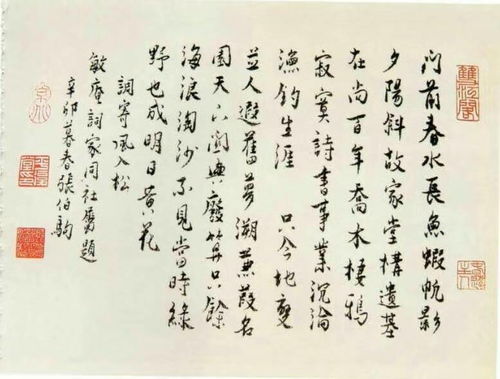 门前春水長魚蝦帆影
夕陽斜故家堂構遺基
在尚百年喬木棲鴉
寂寞詩書事業沉淪
漁釣生涯 只今地變
並人遐舊夢溯蒹葭名
園天下関興廢算只餘
海浪淘沙不見當時緑
野也成明日黃花
調寄風入松
敏庵詞家同社屬題
辛卯暮春張伯駒